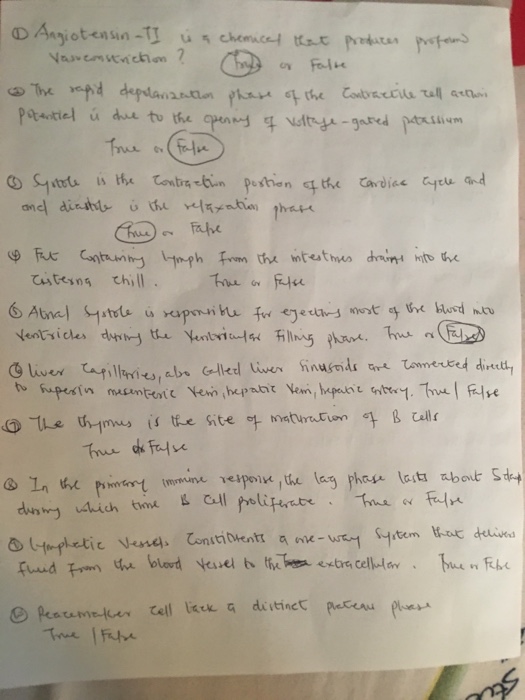 ① Angiotensin-II is a chemical that produces profound
Vasoconstriction ? True or False
② The rapid depolarization phase of the Contractile cell action
potential is due to the opening of voltage-gated potassium
True or False
③ Systole is the Contraction portion of the Cardiac cycle and
and diastole is the relaxation phase
True or False
④ Fat Containing lymph from the intestines drains into the
Cisterna chill. True or False
⑤ Atrial Systole is responsible for ejecting most of the blood into
Ventricles during the Ventricular Filling phase. True or False
⑥ liver Capillaries, also Called liver Sinusoids are Connected directly
to Superior mesenteric Vein, hepatic Vein, hepatic artery. True | False
⑦ The thymus is the site of maturation of B cells
True or False
⑧ In the primary immune response, the lag phase lasts about 5 days
during which time B cell proliferate. True or False
⑨ lymphatic Vessels Constituents a one-way System that delivers
fluid from the blood vessel to the extracellular. True or False
⑩ Peacemaker Cell lack a distinct plateau phase
True | False